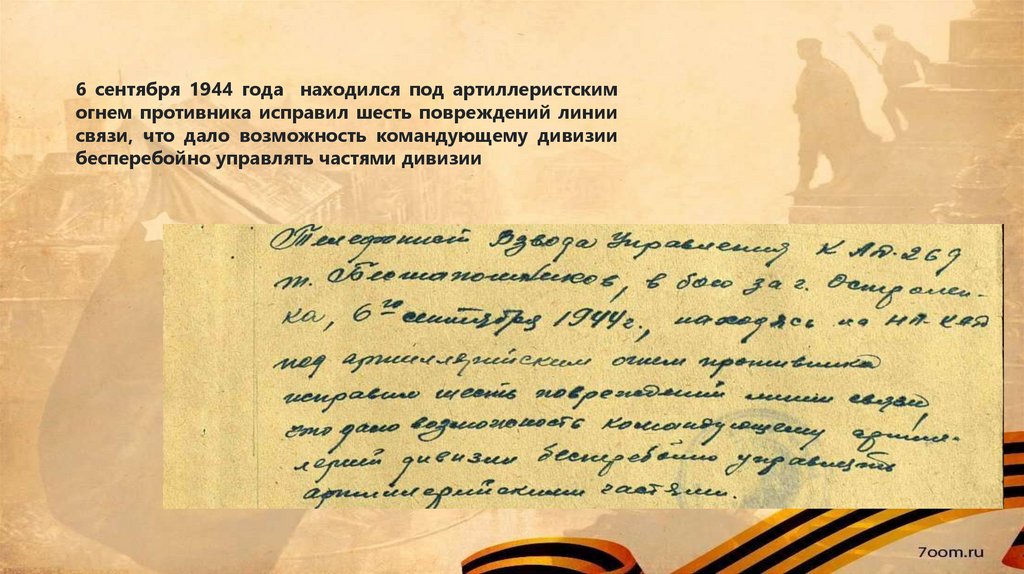 6 сентября 1944 года находился под артиллеристским
огнем противника исправил шесть повреждений линии
связи, что дало возможность командующему дивизии
бесперебойно управлять частями дивизии
Телефонист Взвода Управления КАД-269
т. в бою за г. Остролен-
ка, 6го сентября 1944 г., находясь на НП-КАД
под артиллерийским огнем противника
исправил шесть повреждений линии связи,
что дало возможность командующему артил-
лерией дивизии бесперебойно управлять
артиллерийскими частями.
7oom.ru